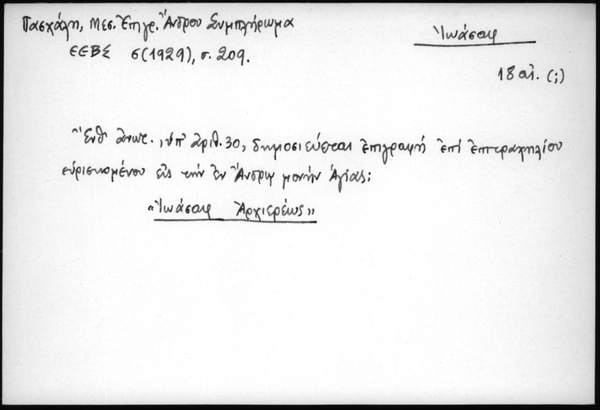 Πασχάλη, Μεσ. Ἐπιγρ. Ἄνδρου Συμπλήρωμα
ΕΕΒΣ 6(1929), σ. 209.
Ἰωάσαφ
18 αἰ. (;)
Ἔνθ' ἀνωτ., ὑπ' ἀριθ. 30, δημοσιεύεται ἐπιγραφή ἐπί ἐπιτραχηλίου
εὑρισκομένου εἰς τὴν ἐν Ἄνδρῳ μονὴν Ἁγίας:
«Ἰωάσαφ Ἀρχιερέως»